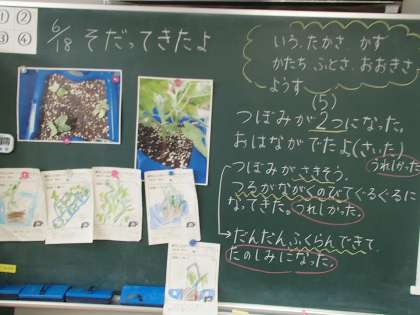 ① ②
③ ④
6/18 そだってきたよ
いろ、たかさ、かず
かたち、ふとさ、おおきさ
ようす
(5)
つぼみが2つになった。
おはながでたよ(さいた)
うれしかった
つぼみがさきそう。
つるがながくのびてぐるぐるに
なってきた。うれしかった。
だんだんふくらんできて、
たのしみになった。